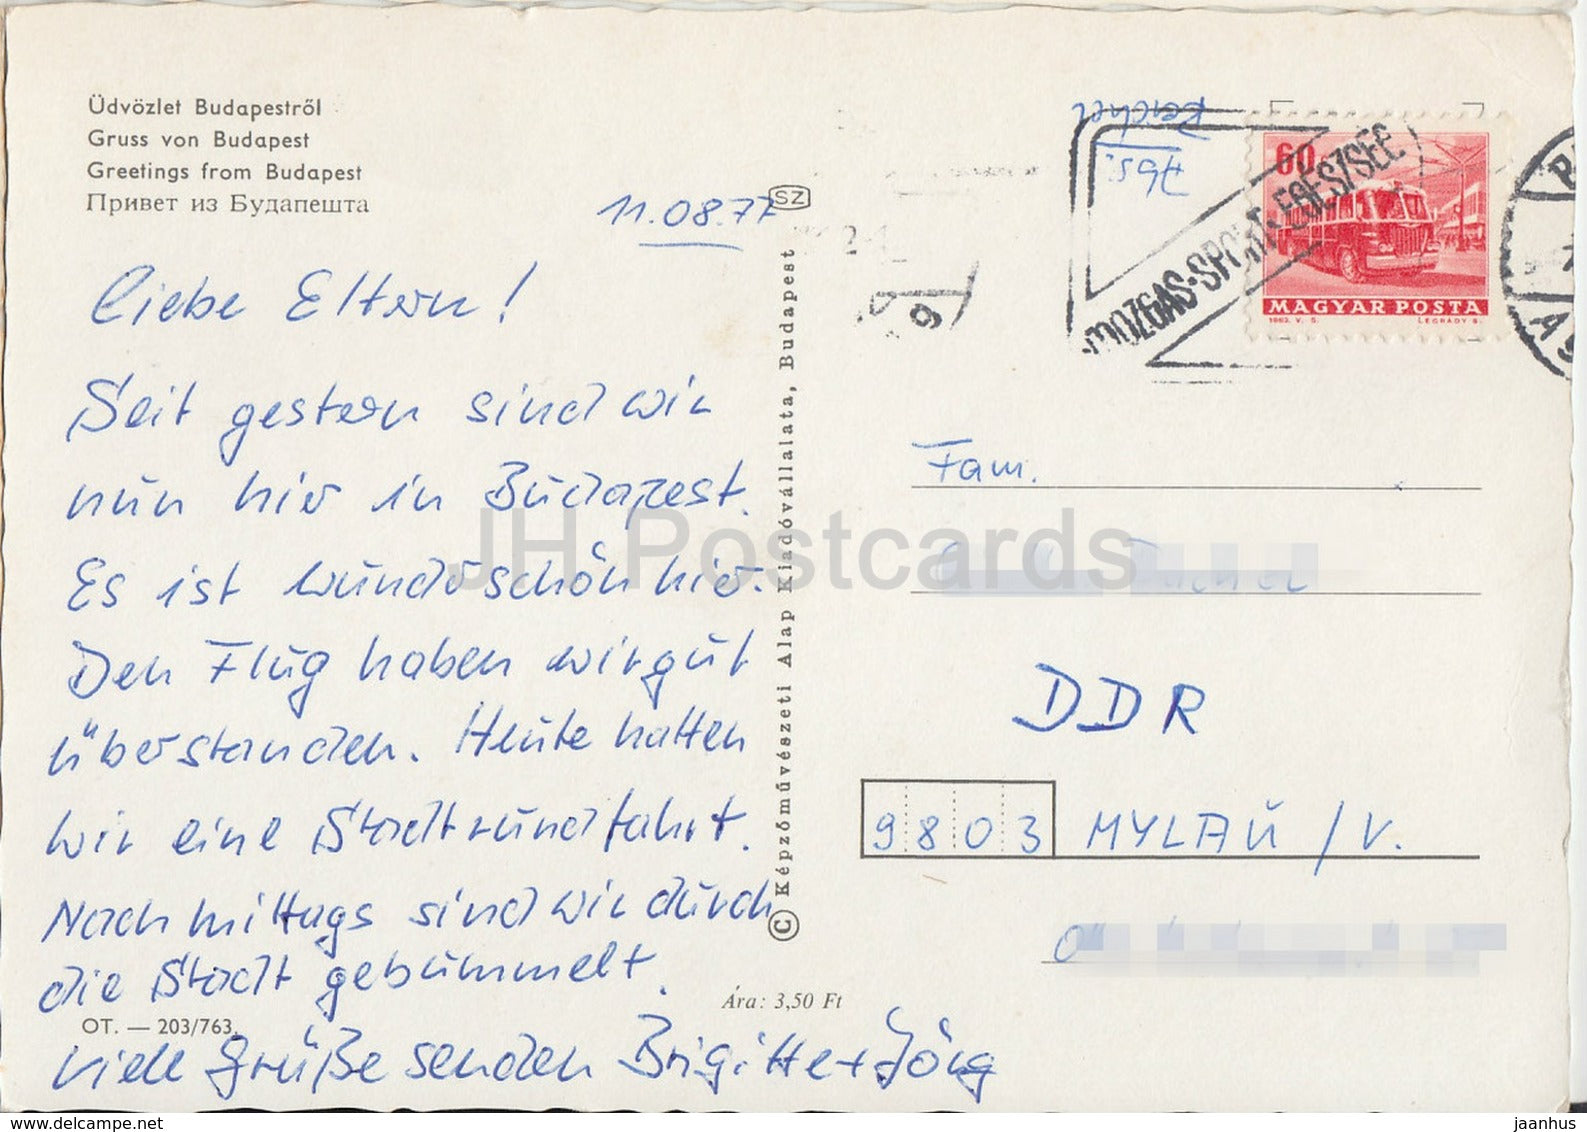 Üdvözlet Budapestről
Gruss von Budapest
Greetings from Budapest
Привет из Будапешта
11.08.77
Liebe Eltern!
Seit gestern sind wir
nun hier in Budapest.
Es ist wunderschön hier.
Den Flug haben wir gut
überstanden. Heute hatten
wir eine Stadtrundfahrt.
Nachmittags sind wir durch
die Stadt gebummelt.
Viele Grüße senden Brigitte + Jörg
OT. — 203/763.
Ára: 3,50 Ft
SZ
© Képzőművészeti Alap Kiadóvállalata, Budapest
Abs.
MOZGÁS-SPORT-EGÉSZSÉG
60
MAGYAR POSTA
1963. V. 5. LÉGRÁDY S.
Fam.
DDR
9803 MYLAU /V.
JH Postcards
www.delcampe.net
jaanhus